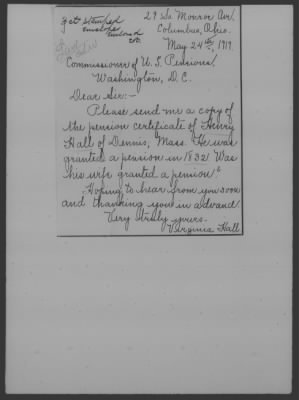 29 So. Monroe Ave.
Columbus, Ohio.
May 24th, 1919.
Commissioner of U.S. Pensions,
Washington, D.C.
Dear Sir:-
Please send me a copy of
the pension certificate of Henry
Hall of Dennis, Mass. He was
granted a pension in 1832. Was
his wife granted a pension?
Hoping to hear from you soon
and thanking you in advance.
Very truly yours.
Virginia Hall